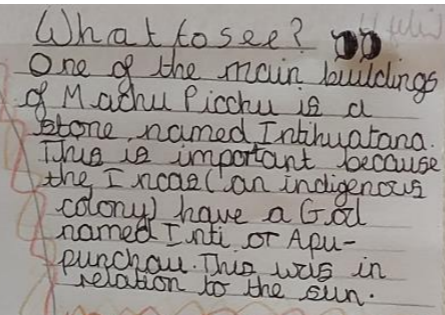 What to see?
One of the main buildings
of Machu Picchu is a
stone, named Intihuatana.
This is important because
the Incas (an indigenous
colony) have a God
named Inti or Apu-
punchau. This was in
relation to the sun.